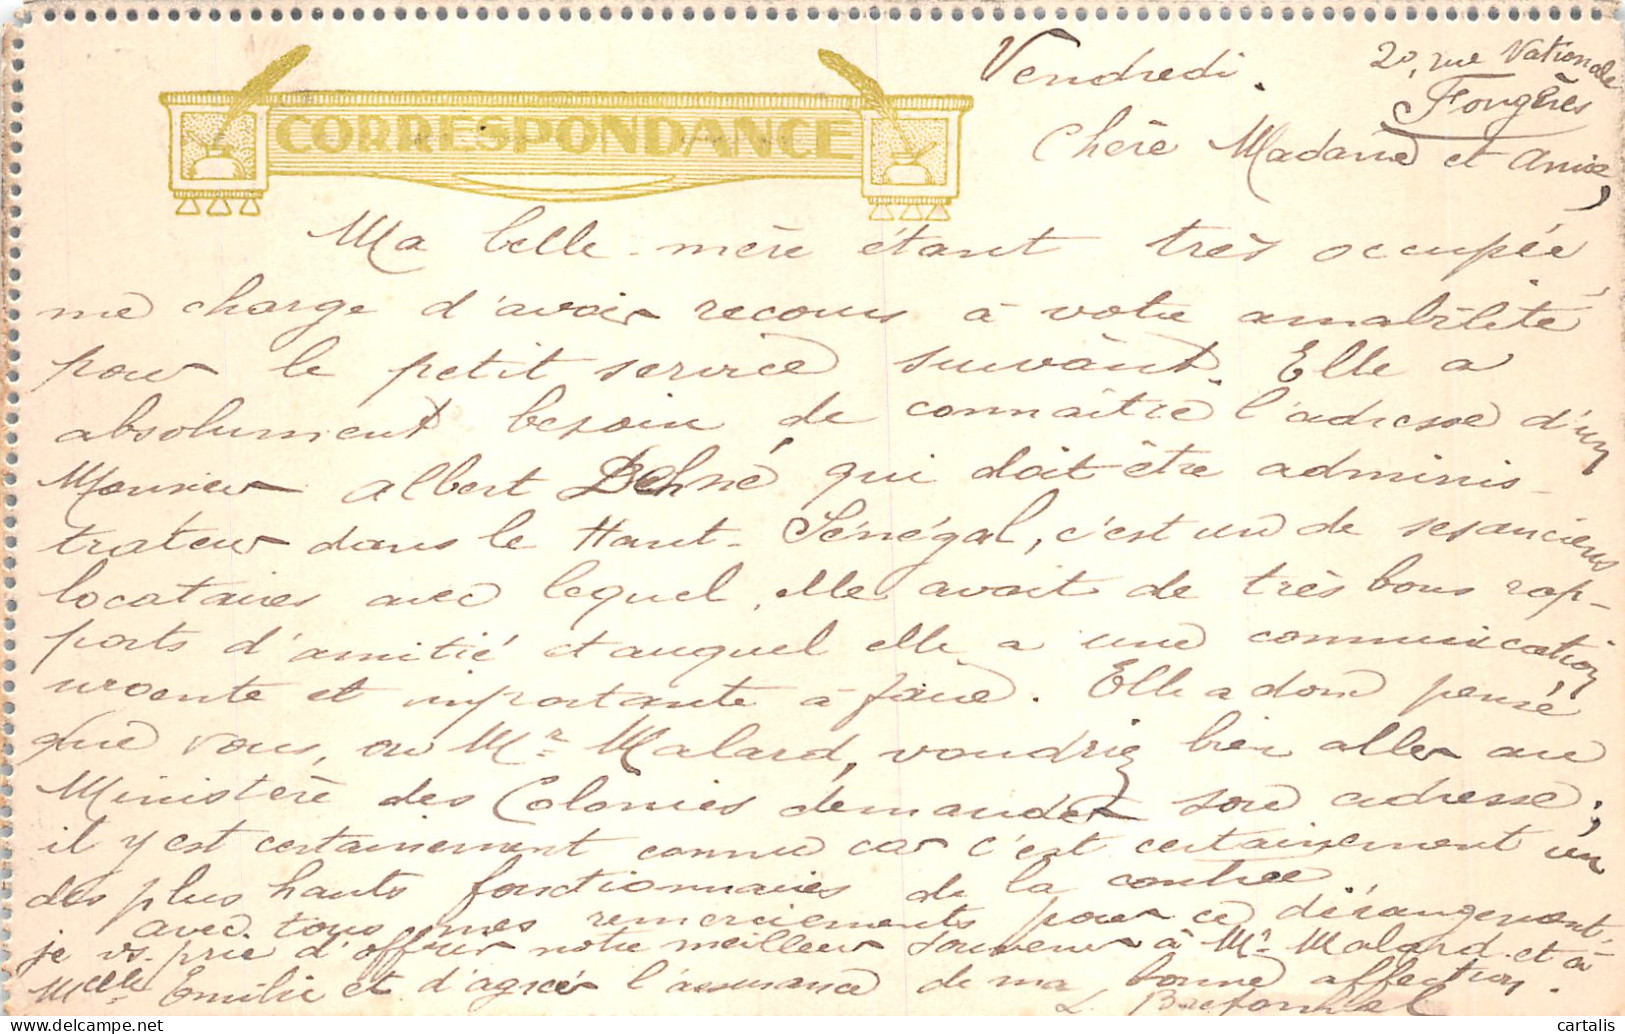 CORRESPONDANCE
Vendredi.
20, rue Nationale
Fougères
Chère Madame et Amie,
Ma belle-mère étant très occupée,
me charge d'avoir recours à votre amabilité
pour le petit service suivant. Elle a
absolument besoin de connaître l'adresse d'un
Monsieur Albert qui doit être adminis-
trateur dans le Haut-Sénégal, c'est un de ses anciens
locataires avec lequel elle avait de très bons rap-
ports d'amitié et auquel elle a une communication
urgente et importante à faire. Elle a donc pensé
que vous, ou Mr Malard, voudriez bien aller au
Ministère des Colonies demander son adresse;
il y est certainement connu car c'est certainement un
des plus hauts fonctionnaires de la contrée
avec tous mes remerciements pour ce dérangement,
je vs. prie d'offrir notre meilleur souvenir à Mr. Malard et à
Mcelle Emilie et d'agréer l'assurance de ma bonne affection.
L.
cartalis
www.delcampe.net